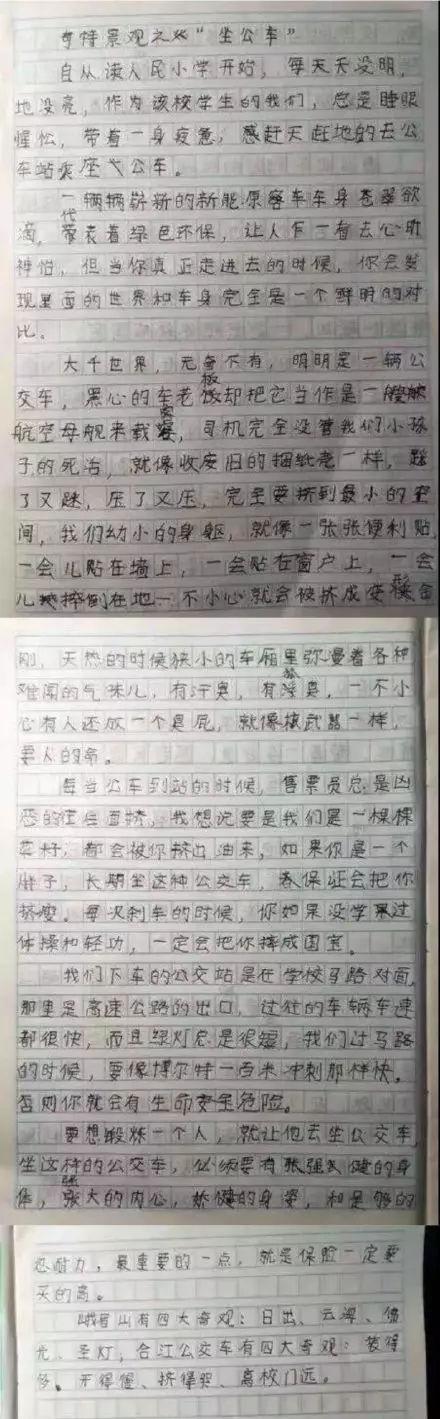 奇特景观之处“坐公车”
自从读人民小学开始，每天天没明，
地没亮，作为该校学生的我们，总是睡眼
惺忪，带着一身疲惫，感赶天赶地的去公
车站乘座公车。
一辆辆崭新的新能原客车车身苍翠欲
滴，代表着绿色环保，让人乍一看去心旷
神怡，但当你真正走进去的时候，你会发
现里面的世界和车身完全是一个鲜明的对
比。
大千世界，无奇不有，明明是一辆公
交车，黑心的车老板却把它当作是一艘
航空母舰来载客，司机完全没管我们小孩
子的死活，就像收废旧的捆纸壳一样，踩
了又踩，压了又压，完全要挤到最小的空
间，我们幼小的身躯，就像一张张便利贴，
一会儿贴在墙上，一会贴在窗户上，一会
儿摔倒在地一不小心就会被挤成变形金
刚，天热的时候狭小的车厢里弥漫着各种
难闻的气味儿，有汗臭，有臭，一不小
心有人还放一个臭屁，就像核武器一样，
要人的命。
每当公车到站的时候，售票员总是凶
恶的往后面挤，我想说要是我们是一棵棵
菜籽，都会被你挤出油来，如果你是一个
胖子，长期坐这种公交车，保证会把你
挤瘦。每次刹车的时候，你如果没学过
体操和轻功，一定会把你摔成国宝。
我们下车的公交站是在学校马路对面，
那里是高速公路的出口，过往的车辆车速
都很快，而且绿灯总是很短，我们过马路
的时候，要像博尔特一百米冲刺那样快。
否则你就会有生命安全危险。
要想锻炼一个人，就让他去坐公交车，
坐这样的公交车，必须要有强健的身
体，强大的内心，矫健的身姿，和足够的
忍耐力，最重要的一点，就是保险一定要
买的高。
峨眉山有四大奇观：日出、云海、佛
光、圣灯，合江公交车有四大奇观：装得
多、开得慢、挤得哭、离校门远。